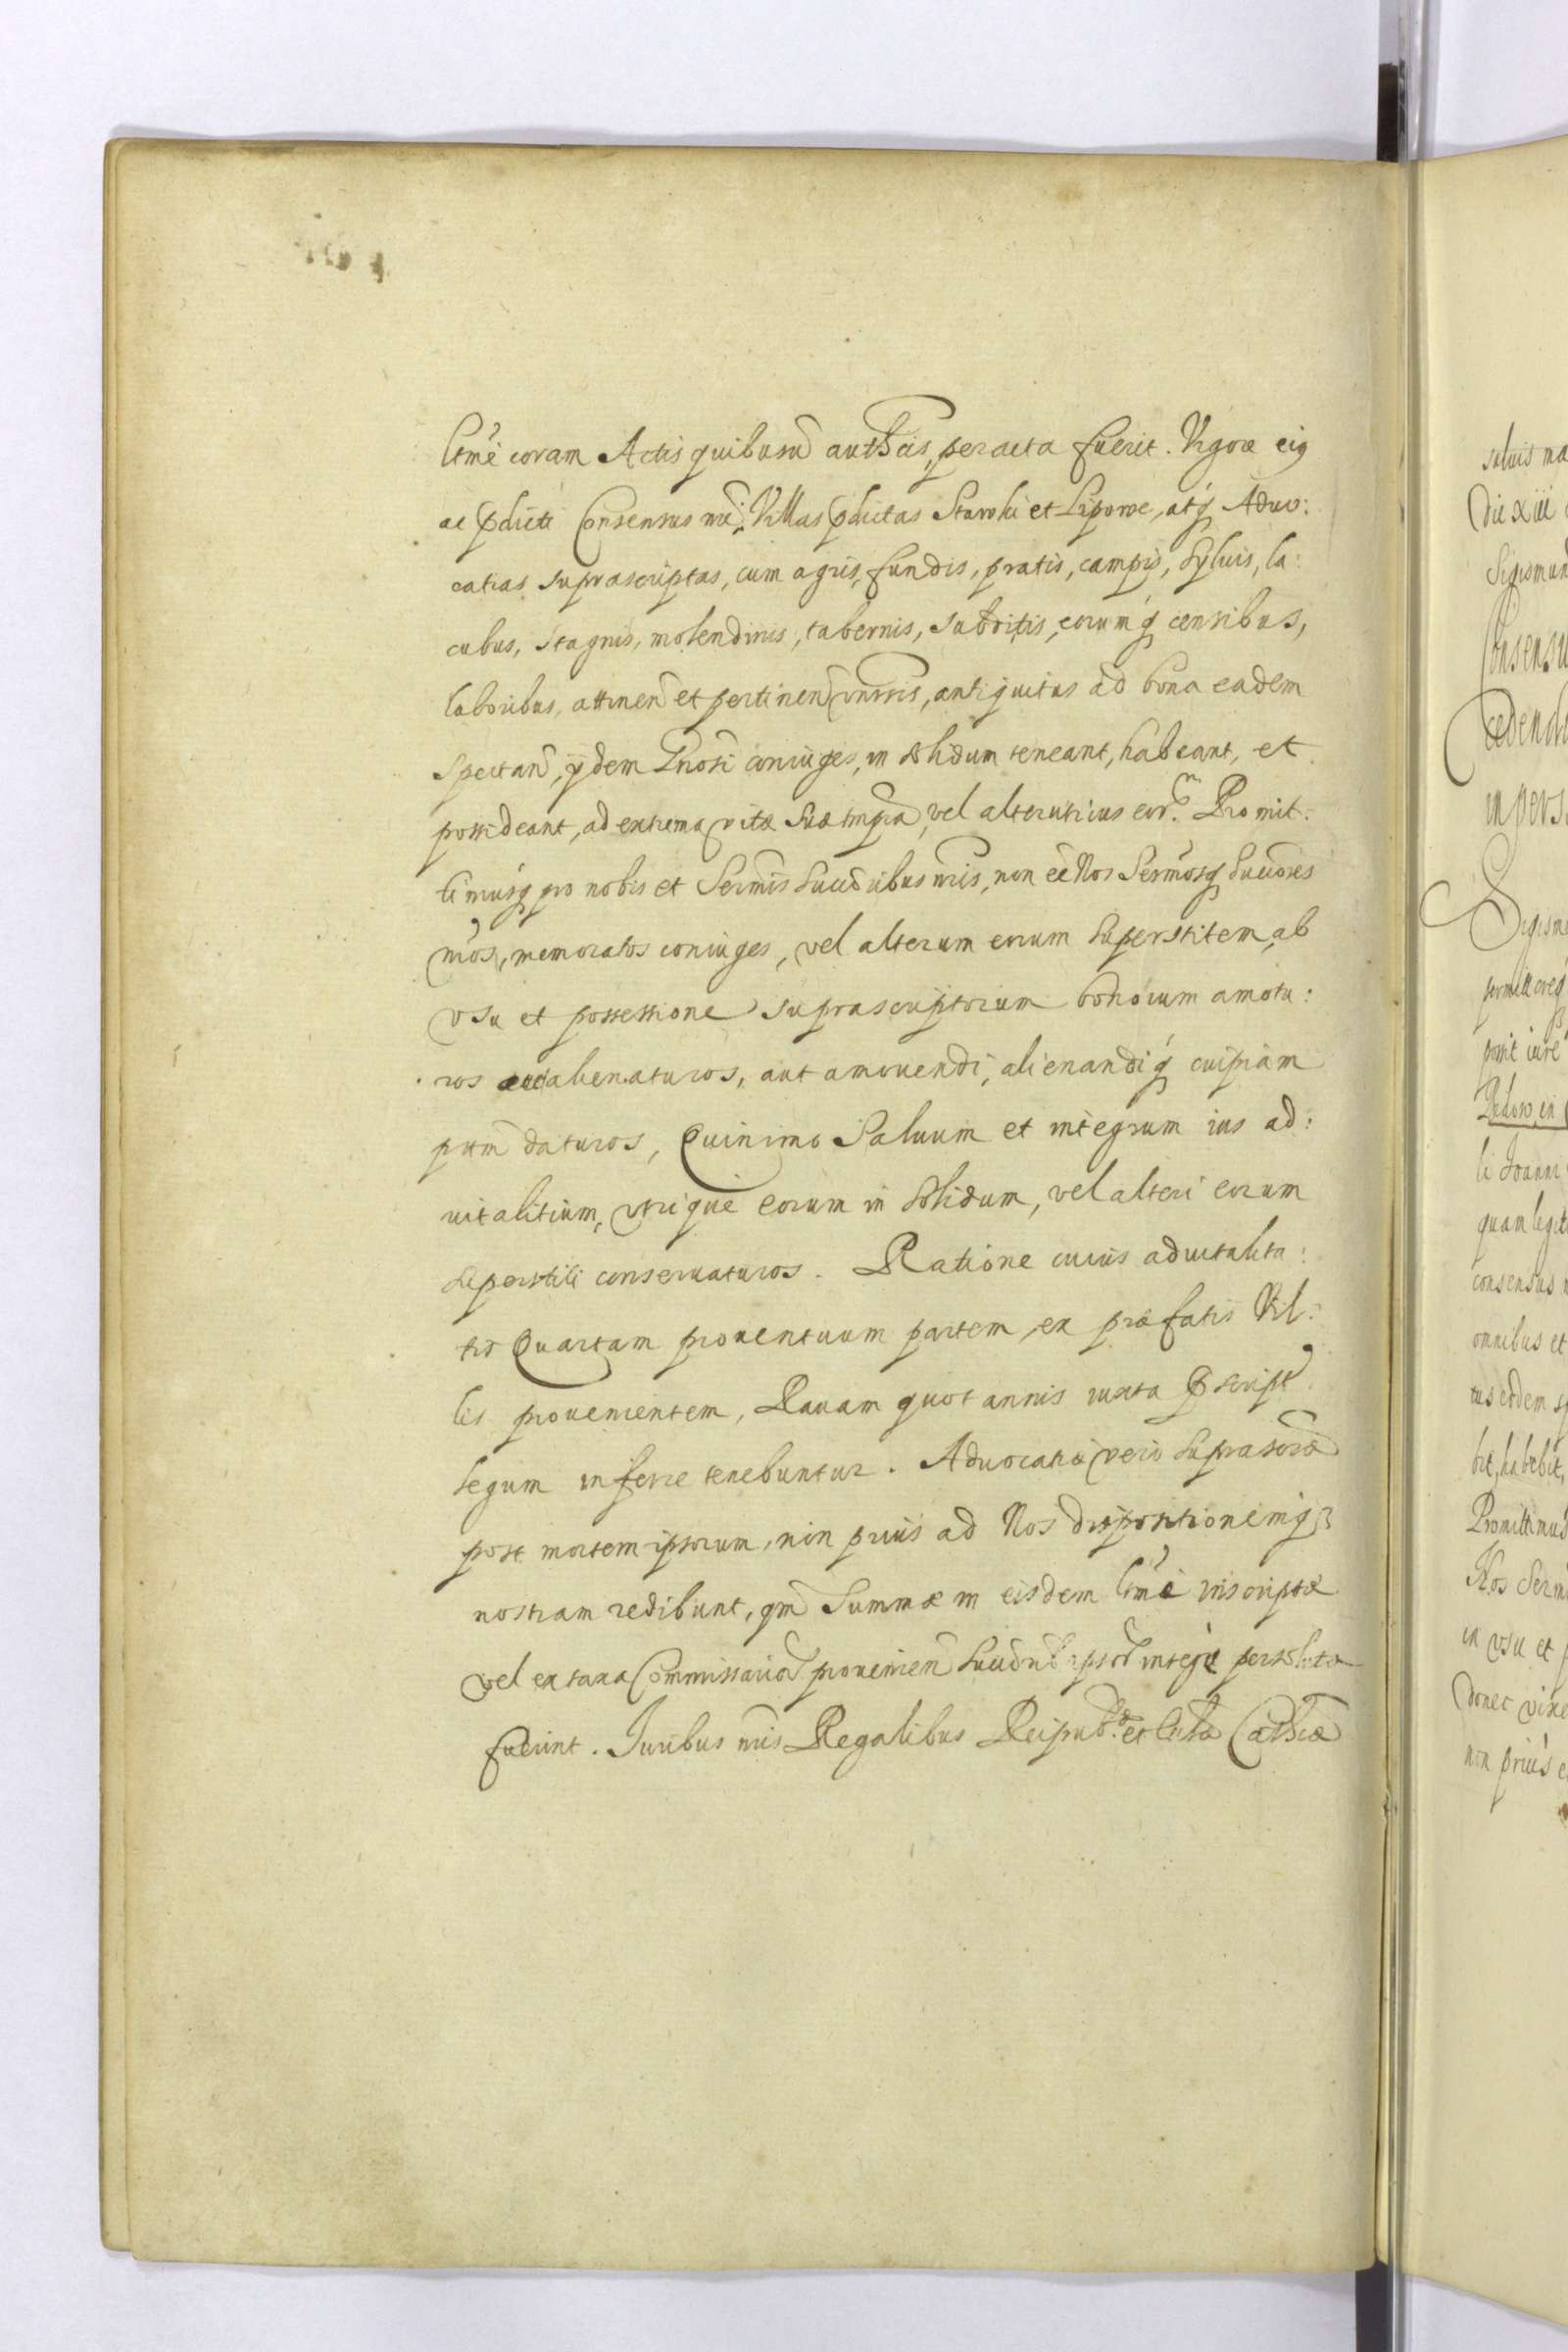 ltmè coram Actis quibusũ authcis, peracta fuerit. Vigore eiq
ac pdicti Consensus nri, Villas pdictas Stawki et Lipowe, atq Aduo:
catias suprascriptas, cum agris, fundis, pratis, campis, syluis, la:
cubus, stagnis, molendinis, tabernis, subditis, eorumq censibus,
laboribus, attinen et pertinen vnrsis, antiquitus ad bona eadem
spectan, ydem Gnosi coniuges, in solidum teneant, habeant, et
possideant, ad extrema vitæ suæ tmpra, vel alterutrius eorm. Promit:
timusq pro nobis et Sermis Succribus nris, non eē Nos Sermosq Succres
nros, memoratos coniuges, vel alterum eorum superstitem, ab
vsu et possessione suprascriptorum bonorum amotu:
ros aut alienaturos, aut amouendi, alienandiq cuipiam
ptm daturos, Quinimo Saluum et integrum ius ad:
uitalitium, vtrique eorum in solidum, vel alteri eorum
superstiti conseruaturos. Ratione cuius aduitalita:
tis Quartam prouentuum partem, ex præfatis Vil:
lis prouenientem, Rauam quotannis iuxta pscript
legum inferre tenebuntur. Aduocatiæ vero suprascræ
post mortem ipsorum, non prius ad Nos dispositionemq
nostram redibunt, qm Summæ in eisdem ltmè inscriptæ
vel ex taxa Commissarior prouenien Succrib ipsor integrè persolutæ
fuerint. Iuribus nris Regalibus Reipub. et Ecclæ Cathcæ
saluis ma
die xiii
Sigismun
Consensu
cedendi
in pers
Sigism
permittereq
possit iure
li Joanni
quam legit
consensus n
omnibus et
tus eodem sp
bit, habebit,
Promittimus
Nos Serm
in vsu et p
donec vixe
non prius e